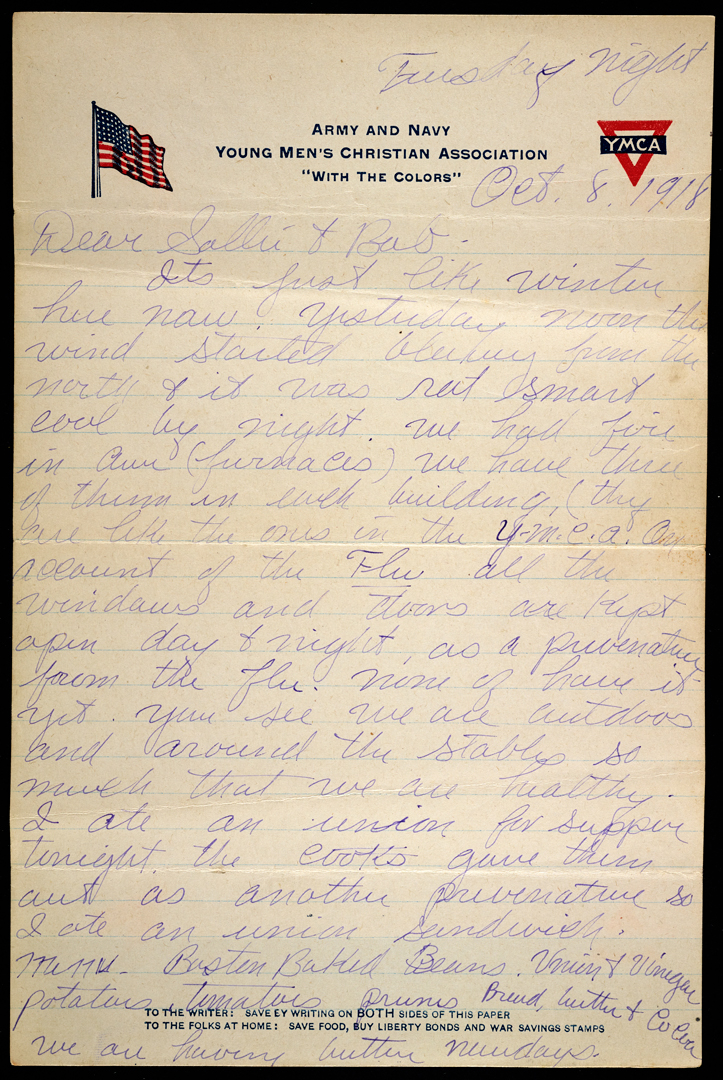 Tuesday Night
ARMY AND NAVY
YOUNG MEN'S CHRISTIAN ASSOCIATION
"WITH THE COLORS"
YMCA
Oct. 8, 1918
Dear Sallie & Bob -
Its just like winter
here now. yesterday noon the
wind started blowing from the
north & it was rat smart
cool by night. we had fire
in our (furnaces) we have three
of them in each building, (they
are like the ones in the Y-M.C.A. On
account of the Flu all the
windows and doors are kept
open day & night, as a prevenative
from the flu. none of have it
yet. you see we are outdoos
and around the stables so
much that we are healthy.
I ate an union for supper
tonight. the cooks gave them
out as another prevenative so
I ate an union sandwich.
menu - Boston Baked Beans. Union & Vinegar
potatoes, tomatoes prunes Bread, butter & Cocoa
TO THE WRITER: SAVE BY WRITING ON BOTH SIDES OF THIS PAPER
TO THE FOLKS AT HOME: SAVE FOOD, BUY LIBERTY BONDS AND WAR SAVINGS STAMPS
we are having butter nowdays.